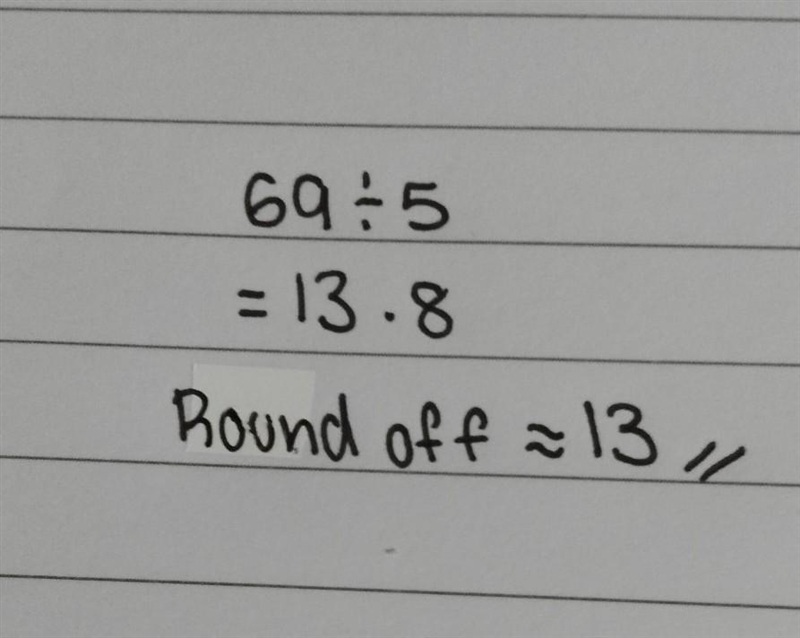 69 ÷ 5
= 13.8
Round off ≈ 13 //